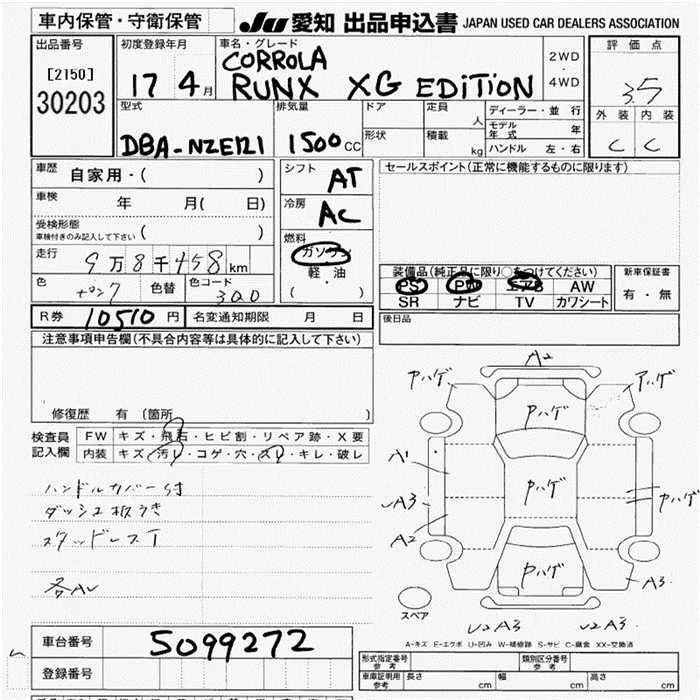 車内保管・守衛保管
JU 愛知 出品申込書 JAPAN USED CAR DEALERS ASSOCIATION
出品番号
[2150]
30203
初度登録年月
17 4月
車名・グレード
CORROLA
RUNX XG EDITION
2WD
・
4WD
評価点
3.5
外装 内装
C C
型式
DBA-NZE121
排気量
1500CC
ドア
形状
定員 人
積載 kg
ディーラー・並行
モデル年式 年
ハンドル 左・右
車歴 自家用・( )
車検 年 月( 日)
受検形態
車検付きのみ記入して下さい ( )
走行 9万8千458km
色 色替 色コード 300
シフト AT
冷房 AC
燃料
ガソリン
・
軽油
( )
セールスポイント(正常に機能するものに限ります)
装備品(純正品に限り○をつけてください)
PS PW エアB AW
SR ナビ TV カワシート
新車保証書
有・無
R券 10510円 名変通知期限 月 日
後日品
注意事項申告欄(不具合内容等は具体的に記入して下さい)
修復歴 有 〔箇所 〕
検査員記入欄
FW キズ・飛石・ヒビ割・リペア跡・X要
内装 キズ・汚レ・コゲ・穴・スレ・キレ・破レ
ハンドルカバー付
ダッシュ板うき
スタッドレスT
A2
Pハゲ
Pハゲ
Pハゲ
A1
A3
A2
Pハゲ
Pハゲ
Pハゲ
A3
U2 A3
U2 A3
スペア
A-キズ E-エクボ U-凹み W-補修跡 S-サビ C-腐食 XX-交換済
車台番号 5099272
登録番号
形式指定番号 参考
類別区分番号 参考
車庫証明用 参考 長さ cm 幅 cm 高さ cm